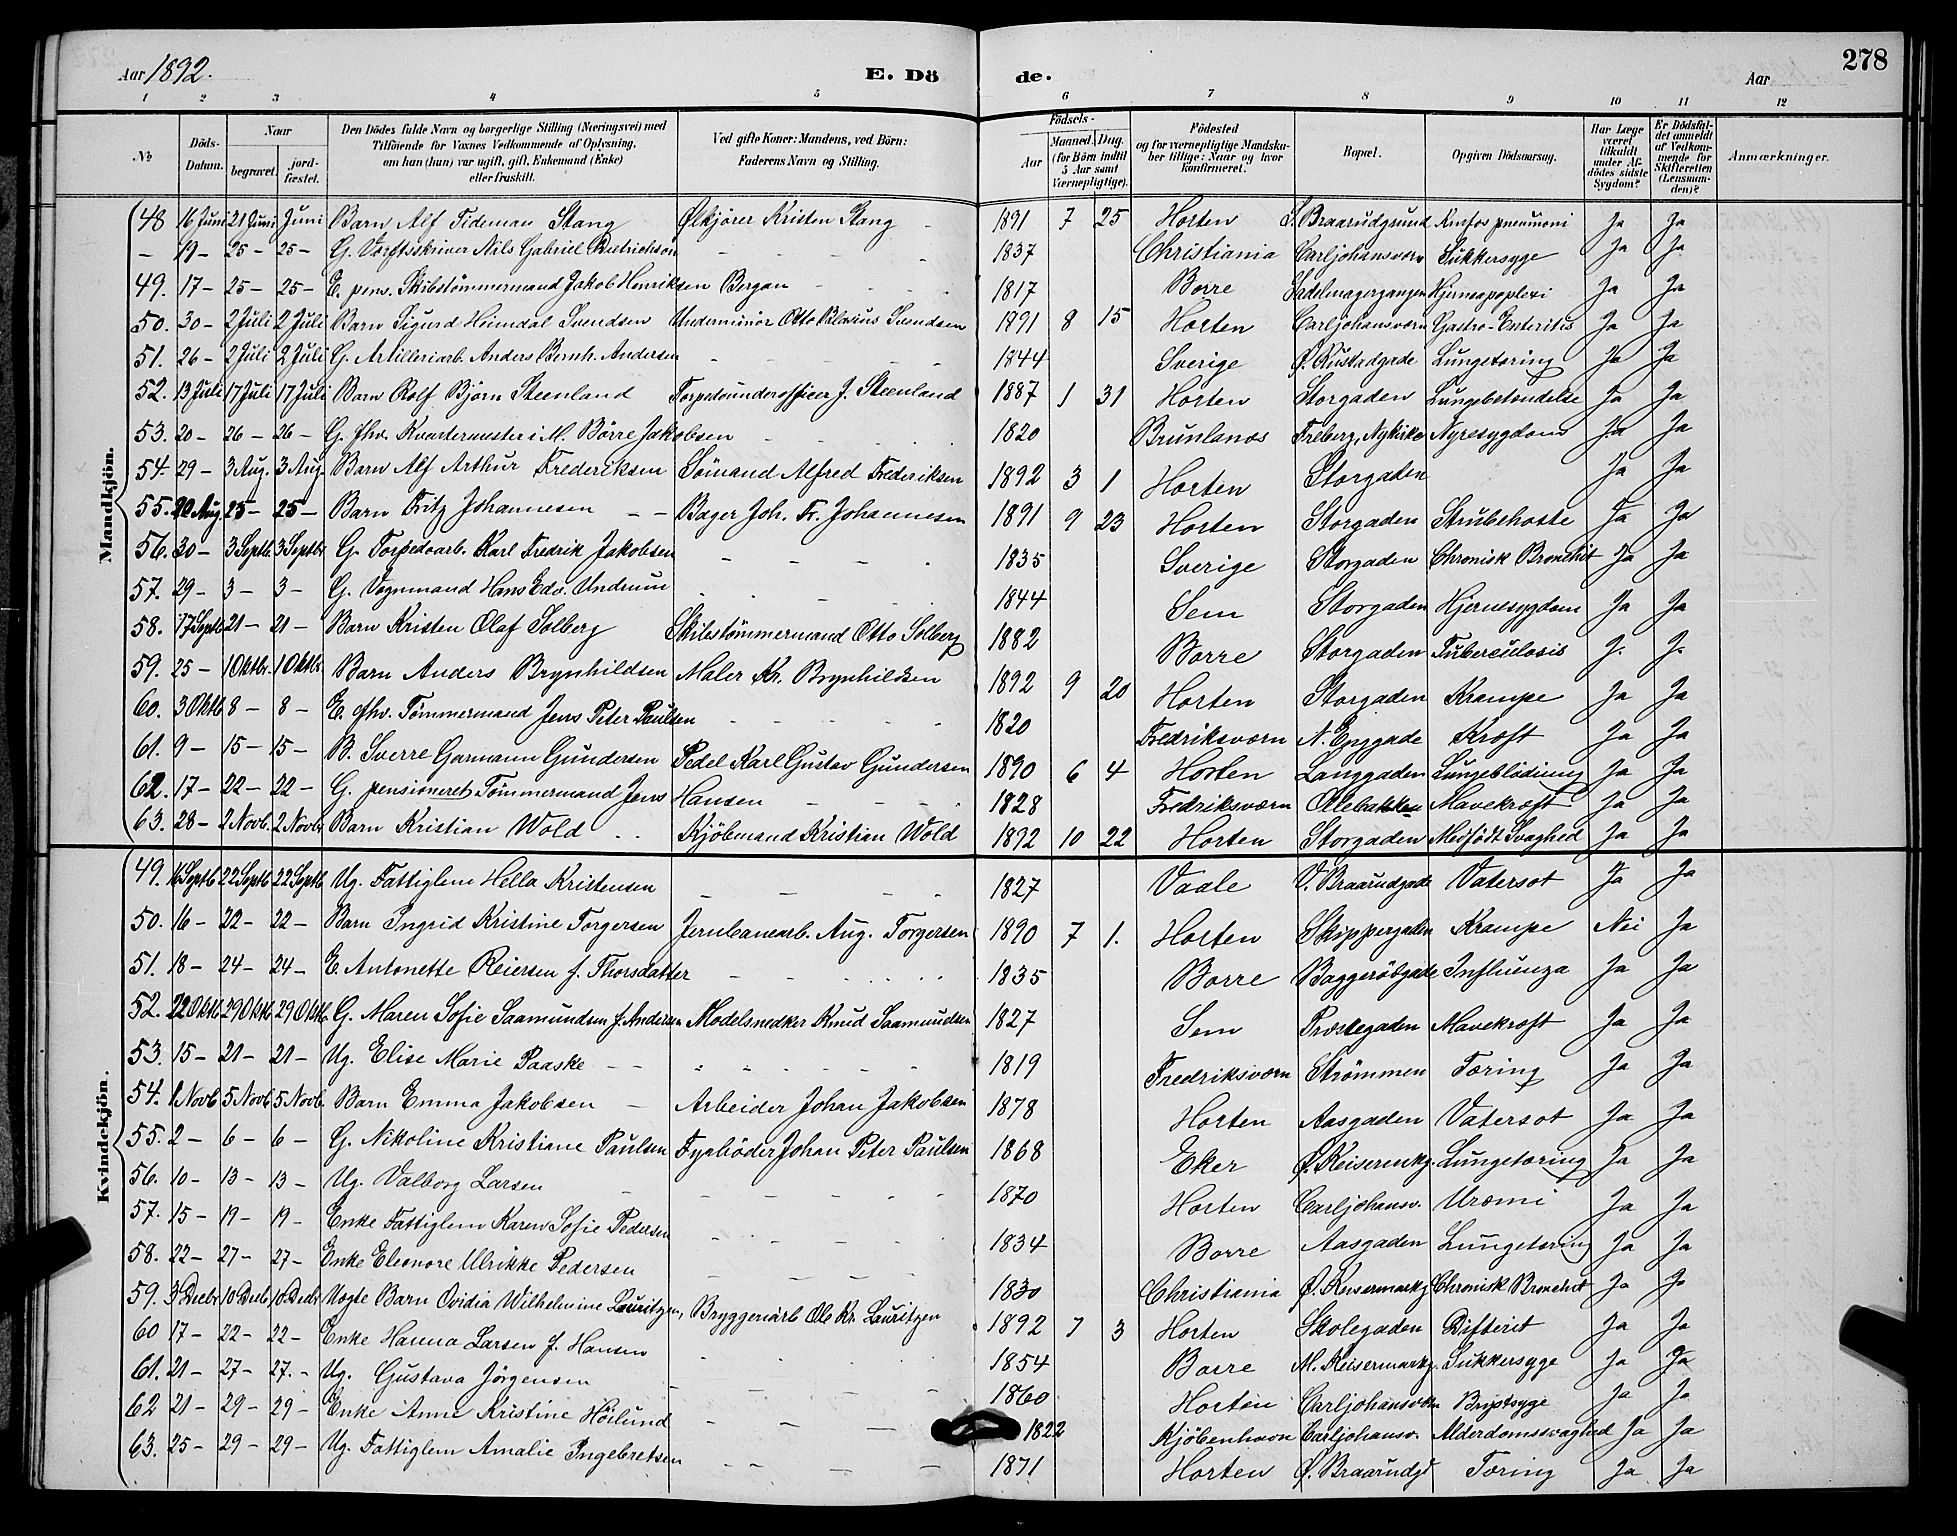 278
Aar 1892. E. Dö de. Aar
1 2 3 4 5 6 7 8 9 10 11 12
№ Döds-Datum. Naar begravet. jord-fæstet. Den Dödes fulde Navn og borgerlige Stilling (Næringsvei) med Tilföiende for Voxnes Vedkommende af Oplysning, om han (hun) var ugift, gift, Enkemand (Enke) eller fraskilt. Ved gifte Koner: Mandens, ved Börn: Faderens Navn og Stilling. Födsels- Aar Maaned Dag. (for Börn indtil 5 Aar samt Værnepligtige). Födested og for værnepligtige Mandskaber tillige: Naar og hvor konfirmeret. Bopæl. Opgiven Dödsaarsag. Har Læge været tilkaldt under Afdödes sidste Sygdom? Er Dödsfaldet anmeldt af Vedkommende for Skifteretten (Lensmanden)? Anmærkninger.
Mandkjön.
48 16 Juni 21 Juni Juni Barn Alf Tideman Stang Ølkjører Kristen Stang 1891 7 25 Horten S. Braarudgrund pneumoni Ja Ja
– 19 – 25 – 25 – G. Værftsskriver Nils Gabriel Dietrichson 1837 Christiania Carljohansværn Sukkersyge Ja Ja
49. 17 – 25 – 25 – E. pens. Skibstømmermand Jakob Henriksen Bergan 1817 Borre Sadelmagergangen Hjerneapoplexi Ja Ja
50. 30 – 2 Juli 2 Juli Barn Sigurd Heimdal Svendsen Underminör Otto Blasius Svendsen 1891 8 15 Horten Carljohansværn Gastro-Enteritis Ja Ja
51. 26 – 2 Juli 2 Juli G. Artilleriarb. Anders Bernh. Andersen 1844 Sverige Ø. Rustadgade Lungetæring Ja Ja
52. 13 Juli 17 Juli 17 Juli Barn Rolf Björn Steenland Torpedounderofficer J. Steenland 1887 1 31 Horten Storgaden Lungebetændelse Ja Ja
53. 20 – 26 – 26 – G. fhv. Kvartermester i M. Börre Jakobsen 1820 Brunlanæs Freberg, Nykirke Nyresygdom Ja Ja
54. 29 – 3 Aug. 3 Aug. Barn Alf Arthur Frederiksen Sömand Alfred Frederiksen 1892 3 1 Horten Storgaden Ja Ja
55. 20 Aug 25 – 25 – Barn Fritz Johannesen Bager Joh. Fr. Johannesen 1891 9 23 Horten Storgaden Strubehoste Ja Ja
56. 30 – 3 Septb. 3 Septbr G. Torpedoarb. Karl Fredrik Jakobsen 1835 Sverige Storgaden Chronisk Bronchit Ja Ja
57. 29 – 3 – 3 – G. Vognmand Hans Edv. Undrum 1844 Sem Storgaden Hjernesygdom Ja Ja
58. 17 Septb 21 – 21 – Barn Kristen Olaf Solberg Skibstømmermand Otto Solberg 1882 Borre Storgaden Tuberculosis J. J.
59. 25 – 1 Oktbr. 1 Oktbr Barn Anders Brynhildsen Maler Kr. Brynhildsen 1892 9 20 Horten Storgaden Krampe Ja Ja
60. 3 Oktb 8 – 8 – E. fhv. Tömmermand Jens Peter Paulsen 1820 Fredriksværn N. Enggade Kræft Ja Ja
61. 9 – 15 – 15 – B. Sverre Garmann Gundersen Pedel Karl Gustav Gundersen 1890 6 4 Horten Langgaden Lungeblödning Ja Ja
62. 17 – 22 – 22 – G. pensioneret Tömmermand Jens Hansen 1828 Fredriksværn Ollebakken Mavekræft Ja Ja
63. 28 – 2 Novb. 2 Novbr Barn Kristian Wold Kjöbmand Kristian Wold 1892 10 22 Horten Storgaden Medfödt Svaghed Ja Ja
Kvindekjön.
49. 16 Septb 22 Septb 22 Septb Ug. Fattiglem Hella Kristensen 1827 Vaale V. Braarudgade Vatersot Ja Ja
50. 16 – 22 – 22 – Barn Ingrid Kristine Torgersen Jernbanearb. Aug. Torgersen 1890 7 1. Horten Skippergaden Krampe Nei Ja
51. 18 – 24 – 24 – E Antonette Reiersen f. Thorsdatter 1835 Borre Baggerödgade Influenza Ja Ja
52. 22 Oktb 29 Oktb 29 Oktb. G. Maren Sofie Saamundsen f. Andersen Modelsnedker Knud Saamundsen 1827 Sem Præstegaden Mavekræft Ja Ja
53. 15 – 21 – 21 – Ug. Elise Marie Paaske 1819 Fredriksværn Strömmen Tæring Ja Ja
54. 1 Novb 5 Novb 5 Novb. Barn Emma Jakobsen Arbeider Johan Jakobsen 1878 Horten Aasgaden Vatersot Ja Ja
55. 2 – 6 – 6 – G. Nikoline Kristiane Paulsen Fyrböder Johan Peter Paulsen 1868 Eker Ø. Keiserenkg. Lungetæring Ja Ja
56. 10 – 13 – 13 – Ug. Valborg Larsen 1870 Horten Carljohansv. Uræmi Ja Ja
57. 15 – 19 – 19 – Enke Fattiglem Karen Sofie Pedersen 1834 Borre Aasgaden Lungetæring Ja Ja
58. 22 – 27 – 27 – Enke Eleonore Ulrikke Pedersen 1830 Christiania Ø. Keisermarkg Chronisk Bronchit Ja Ja
59. 3 Decbr 10 Decb 10 Decbr Uægte Barn Ovidia Wilhelmine Lauritzen, Bryggeriarb Ole Kr. Lauritzen 1892 7 3 Horten Skolegaden Difterit Ja Ja
60 17 – 22 – 22 – Enke Hanna Larsen f. Hansen 1854 Borre M. Keisermarkg. Sukkersyge Ja Ja
61. 21 – 27 – 27. – Ug. Gustava Jörgensen 1860 Horten Carljohansværn Brystsyge Ja Ja
62 21 – 29 – 29 – Enke Anne Kristine Höilund 1822 Kjöbenhavn Carljohansv. Alderdomssvaghed Ja Ja
63. 25 – 29 – 29 – Ug. Fattiglem Amalie Ingebretsen 1871 Horten Ø. Braarudgd Tæring Ja Ja